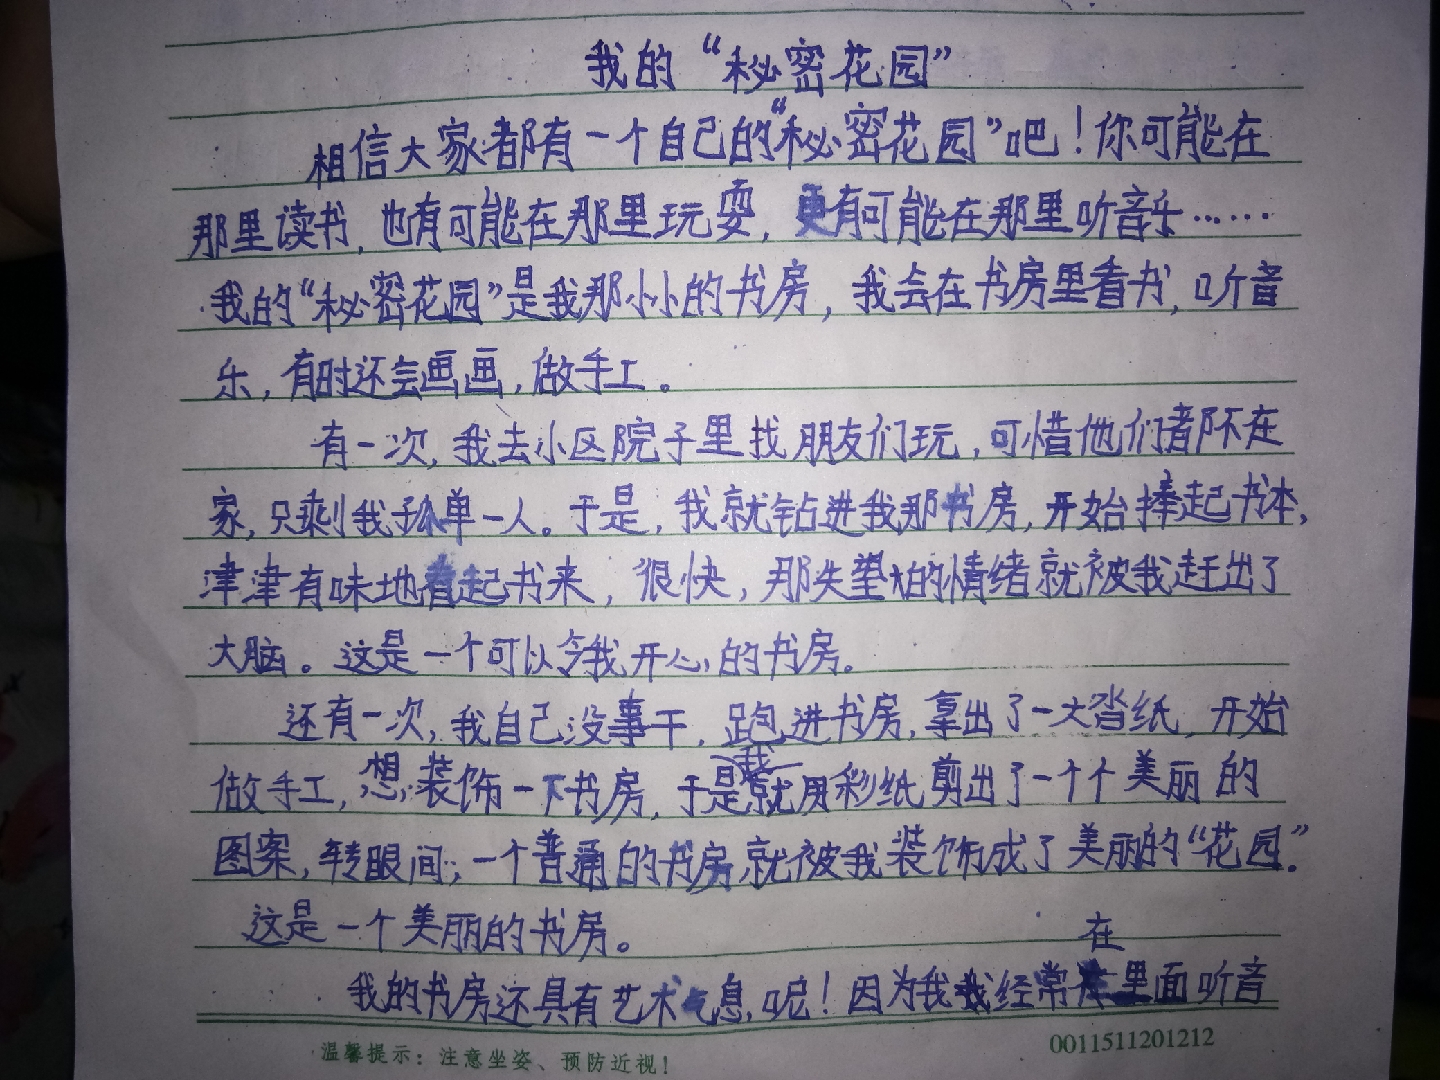 我的“秘密花园”
相信大家都有一个自己的“秘密花园”吧！你可能在
那里读书，也有可能在那里玩耍，更有可能在那里听音乐……
我的“秘密花园”是我那小小的书房，我会在书房里看书，听音
乐，有时还会画画，做手工。
有一次，我去小区院子里找朋友们玩，可惜他们都不在
家，只剩我孤单一人。于是，我就钻进我那书房，开始捧起书本，
津津有味地看起书来，很快，那失望的情绪就被我赶出了
大脑。这是一个可以令我开心的书房。
还有一次，我自己没事干，跑进书房，拿出了一大沓纸，开始
做手工，想装饰一下书房，于是我就用彩纸剪出了一个个美丽的
图案，转眼间；一个普通的书房，就被我装饰成了美丽的“花园”。
这是一个美丽的书房。
我的书房还具有艺术气息呢！因为我经常在里面听音
温馨提示：注意坐姿、预防近视！
0011511201212